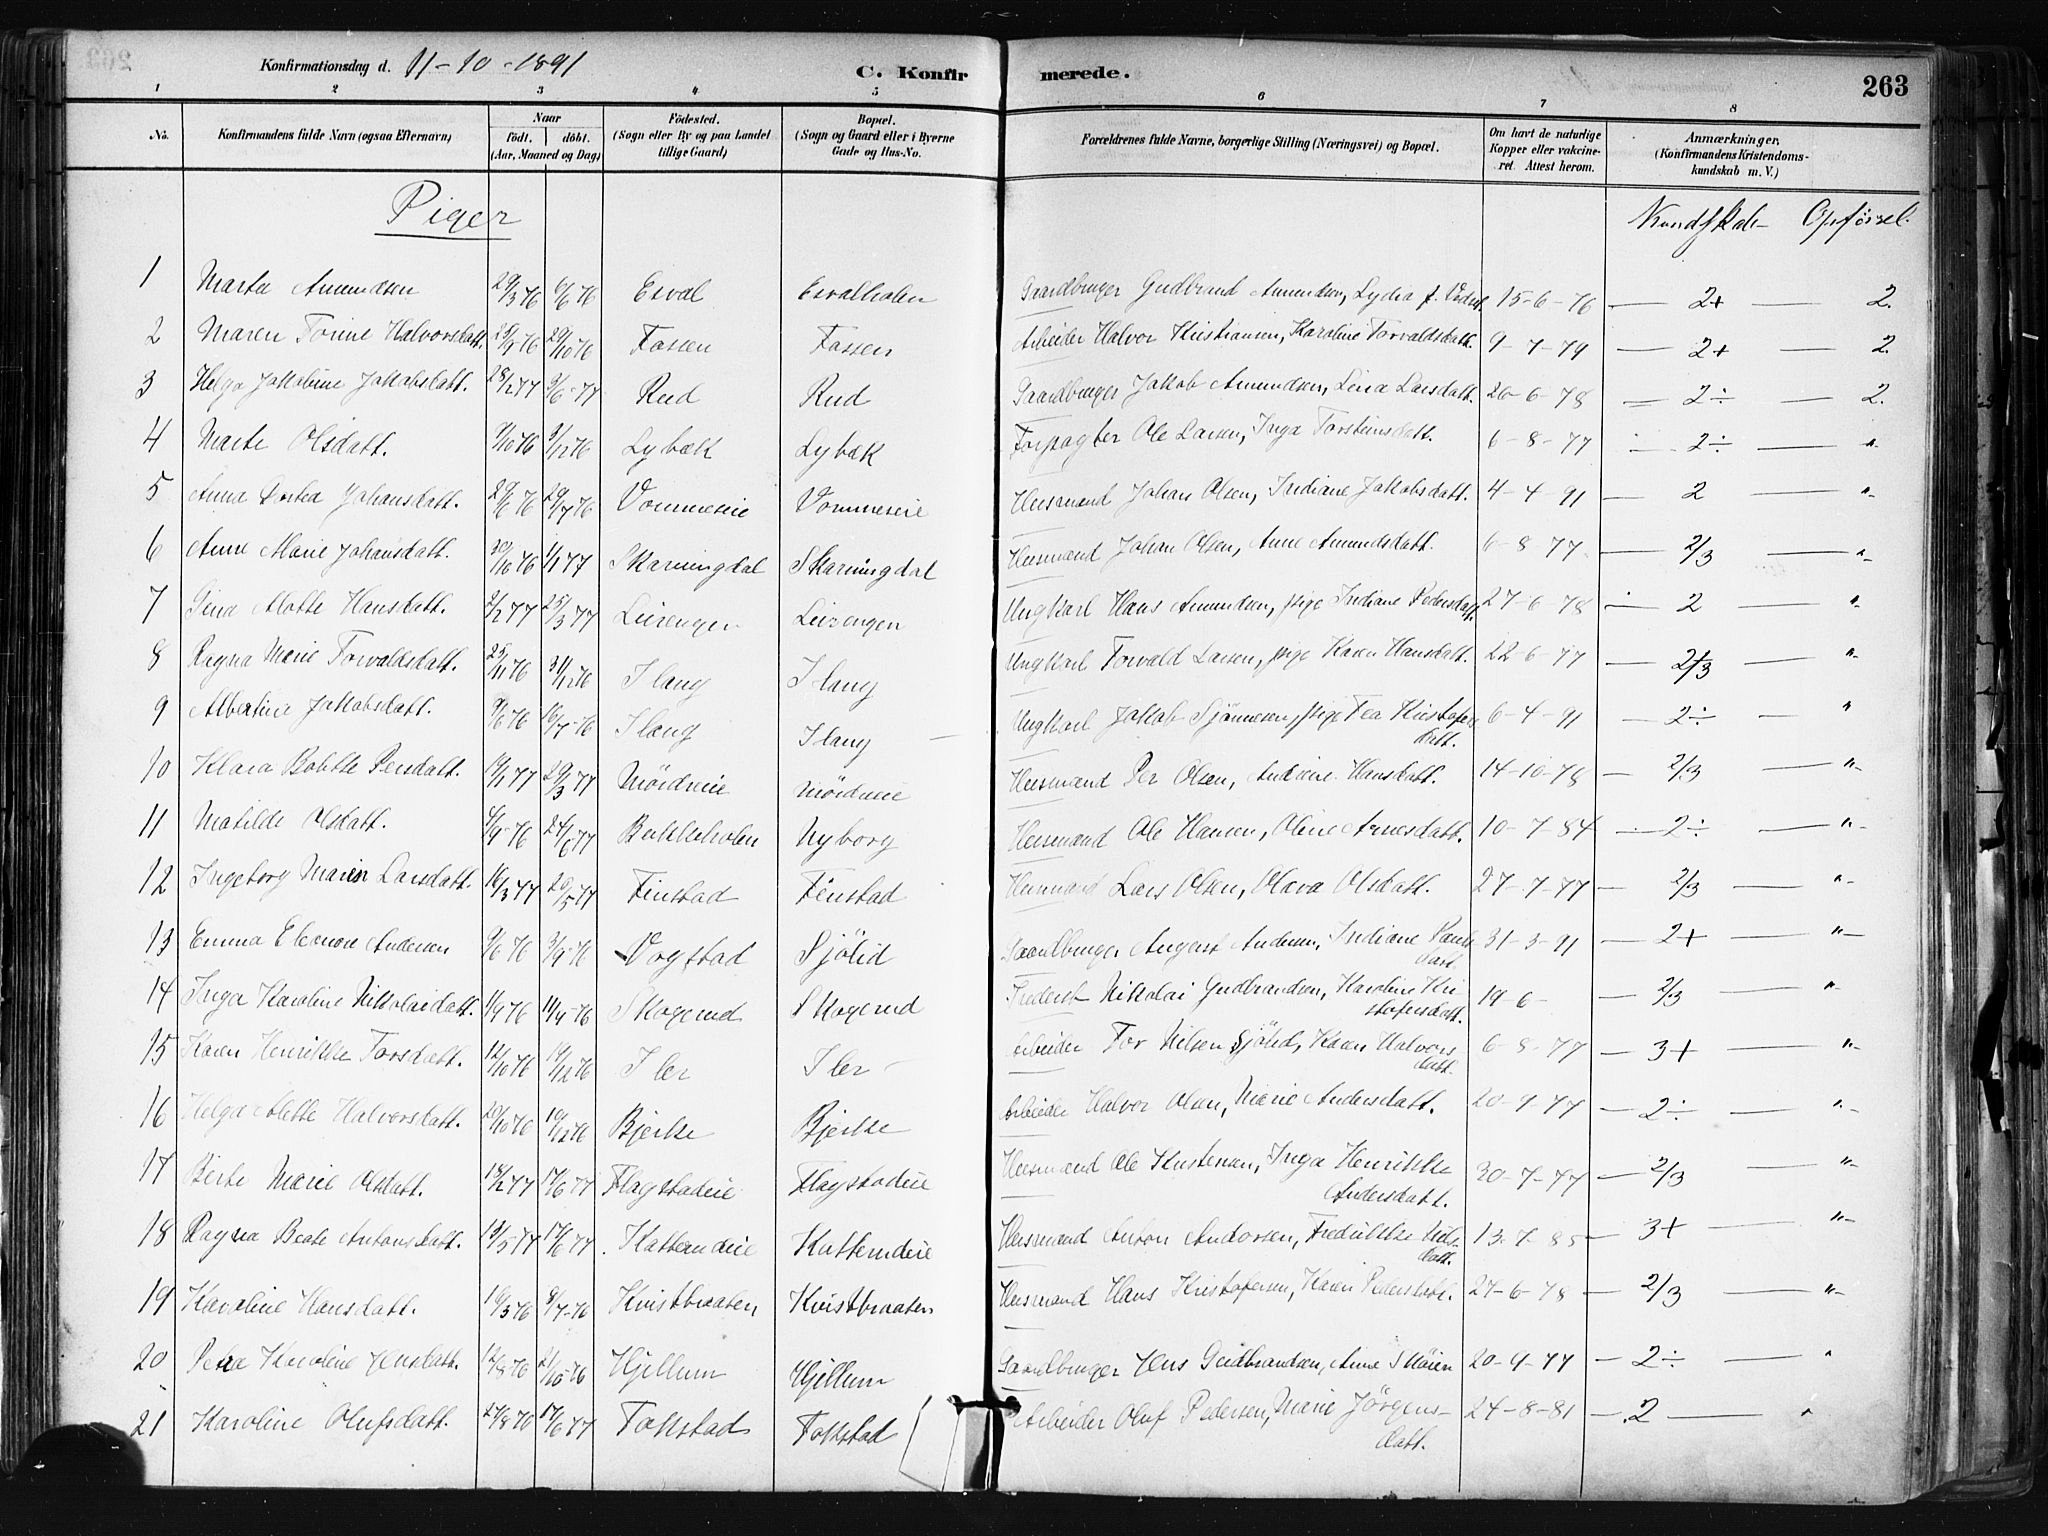 Konfirmationsdag d. 11-10-1891 C. Konfirmerede. 263
1 2 3 4 5 6 7 8
No. Konfirmandens fulde Navn (ogsaa Efternavn) Naar født. døbt. (Aar, Maaned og Dag) Fødested. (Sogn eller By og paa Landet tillige Gaard) Bopæl. (Sogn og Gaard eller i Byerne Gade og Hus-No. Forældrenes fulde Navne, borgerlige Stilling (Næringsvei) og Bopæl. Om havt de naturlige Kopper eller vakcineret. Attest herom. Anmærkninger. (Konfirmandens Kristendomskundskab m. V.)
Piger Kundskab Opførsel
1 Marta Amundsen 29/3 76 6/6 76 Esval Esvalholen Gaardbruger Gudbrand Amundsen, Lydia f. 15-6-76 — 2+ — 2.
2 Maren Torine Halvorsdatt. 29/10 76 Fossen Fossen Arbeider Halvor Kristiansen, Karoline Torvaldsdatt. 9-7-79 — 2+ — 2.
3 Helga Jakobine Jakobsdatt. 28/2 77 3/6-77 Rud Rud Gaardbruger Jakob Amundsen, Lina Larsdatt. 20-6-78 — 2÷ — 2.
4 Marte Olsdatt. 9/10 76 3/12 76 Lybæk Lybæk Forpagter Ole Larsen, Inga Torstensdatt. 6-8-77 — 2÷ — "
5 Anna Dortea Johansdatt. 29/6 76 29/7 76 Vommeseie Vommeseie Husmand Johan Olsen, Indiane Jakobsdatt. 4-4-91 — 2 — "
6 Anne Marie Johansdatt. 30/10 76 1/1 77 Skarningdal Skarningdal Husmand Johan Olsen, Anne Amundsdatt. 6-8-77 — 2/3 — "
7 Gina Mathe Hansdatt. 2/2 77 25/3 77 Leirengen Leirengen Ungkarl Hans Amundsen, pige Indiane Pedersdatt. 27-6-78 2 — "
8 Ragna Marie Torvaldsdatt. 25/11 76 31/12 76 Ilang Ilang Ungkarl Torvald Larsen, pige Karen Hansdatt. 22-6-77 — 2/3 — "
9 Albertine Jakobsdatt. 9/6 76 16/7-76 Ilang Ilang Ungkarl Jakob Sjønnesen, pige Tea Kristofersdatt. 6-4-91 — 2÷ — "
10 Klara Bolette Persdatt. 19/1 77 29/3 77 Mördreeie Mördreeie Husmand Per Olsen, Andrine Hansdatt. 14-10-78 — 2/3 — "
11 Matilde Olsdatt. 4/9-76 24/6 77 Bokkeholen Nyborg Husmand Ole Hansen, Oline Arnesdatt. 10-7-84 2÷ — "
12 Ingeborg Maren Larsdatt. 16/3 77 20/5 77 Finstad Finstad Husmand Lars Olsen, Olava Olsdatt. 27-7-77 — 2/3 — "
13 Emma Eleonore Andersen 9/6 76 3/9-76 Vogstad Sjølid Gaardbruger August Andersen, Indiane 31-3-91 — 2+ — "
14 Inga Karoline Nikolaidatt. 1/9 76 Skogerud Skogerud Nikolai Gudbrandsen, Karoline Kristofersdatt. 19-6- — 2/3 — "
15 Karen Henrikke Torsdatt. 12/10 76 19/12 76 Iler Iler Arbeider Tor Nilsen Sjølid, Karen Halvorsdatt. 6-8-77 — 3+ — "
16 Helga Alette Halvorsdatt. 20/10 76 10/12 76 Bjerke Bjerke Arbeider Halvor Olsen, Marie Andersdatt. 20-9-77 — 2÷ — "
17 Berte Marie Olsdatt. 18/2 77 17/6 77 Flagstadeie Flagstadeie Husmand Ole Kristensen, Inga Henrikke Andersdatt. 30-7-77 — 2/3 — "
18 Ragna Beate Antonsdatt. 19/5 77 17/6 77 Kattemdeie Kattemdeie Husmand Anton Andersen, Fredrikke Nilsdatt. 13-7-85 — 3+ — "
19 Karoline Hansdatt. 16/3 76 8/7-76 Kvistbraaten Kvistbraaten Husmand Hans Kristofersen, Karen Pedersdatt. 27-6-78 — 2/3 — "
20 Petra Karoline Jensdatt. 12/8 76 21/10-76 Hjellum Hjellum Gaardbruger Jens Gudbrandsen, Anne Skøien 20-9-77 — 2÷ — "
21 Karoline Olufsdatt. 27/8 76 17/6 77 Tokstad Tokstad Arbeider Oluf Pedersen, Marie Jörgensdatt. 24-8-81 — 2 — "